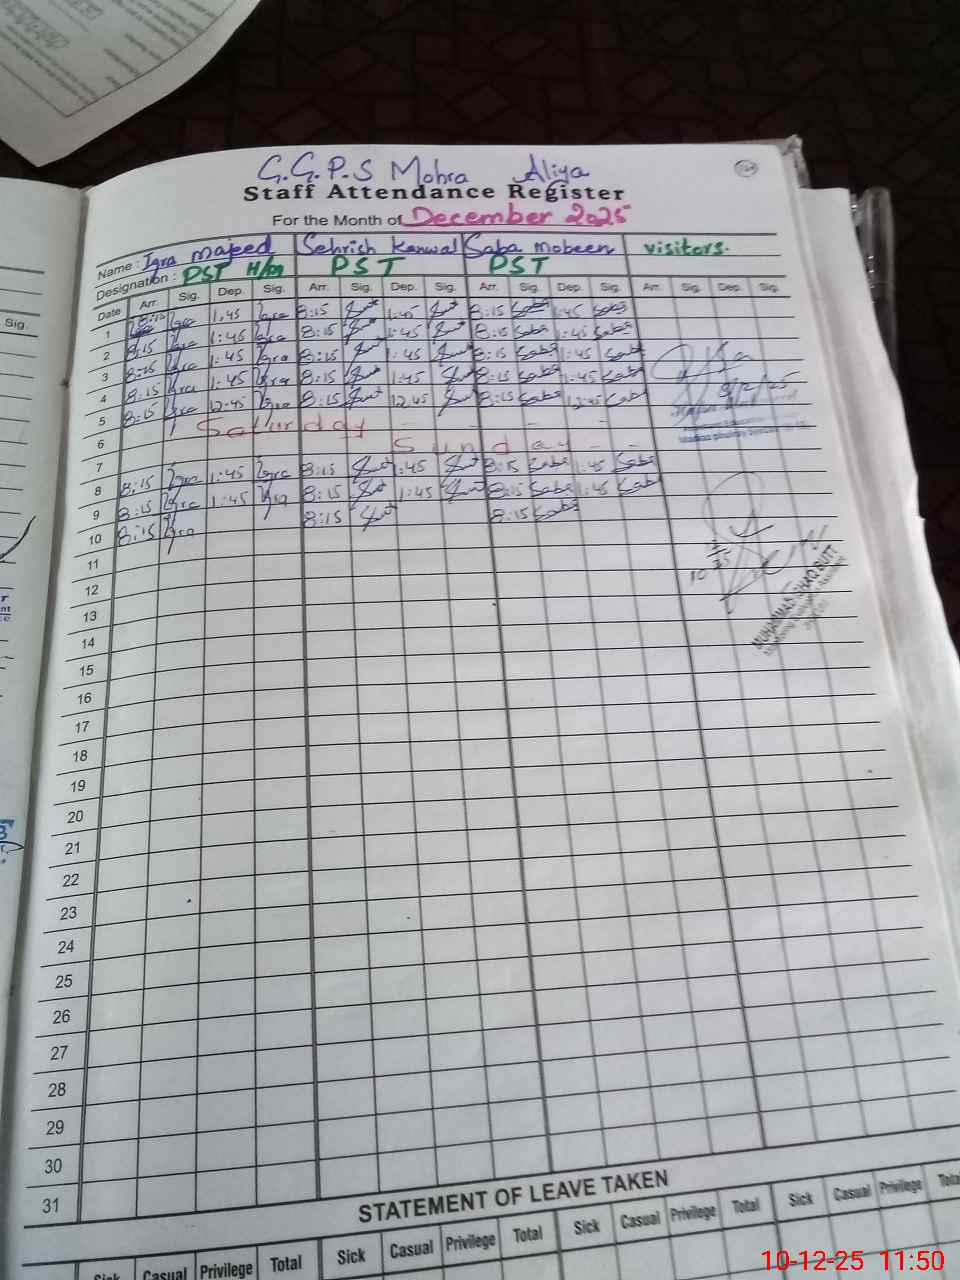 G.G.P.S Mohra Aliya
Staff Attendance Register
For the Month of December 2025
Name : Iqra majeed Sehrish Kanwal Saba mobeen visitors.
Designation : PST H/m PST PST
Date Arr. Sig. Dep. Sig. Arr. Sig. Dep. Sig. Arr. Sig. Dep. Sig. Arr. Sig. Dep. Sig.
1 8:15 Iqra 1.45 Iqra 8:15 1:45 8:15 Saba 1:45 Saba
2 8:15 Iqra 1:45 Iqra 8:15 1:45 8:15 Saba 1:45 Saba
3 8:15 Iqra 1:45 Iqra 8:15 1:45 8:15 Saba 1:45 Saba
4 8:15 Iqra 1:45 Iqra 8:15 1:45 8:15 Saba 1:45 Saba
5 8:15 Iqra 12:45 Iqra 8:15 12.45 8:15 Saba 12:45 Saba
6 Saturday - - - -
7 Sunday - -
8 8:15 Iqra 1:45 Iqra 8:15 1:45 8:15 Saba 1:45 Saba
9 8:15 Iqra 1:45 Iqra 8:15 1:45 8:15 Saba 1:45 Saba
10 8:15 Iqra 8:15 8:15 Saba
11
12
13
14
15
16
17
18
19
20
21
22
23
24
25
26
27
28
29
30
31
STATEMENT OF LEAVE TAKEN
Sick Casual Privilege Total Sick Casual Privilege Total Sick Casual Privilege Total Sick Casual Privilege Total
Sig.
10-12-25 11:50